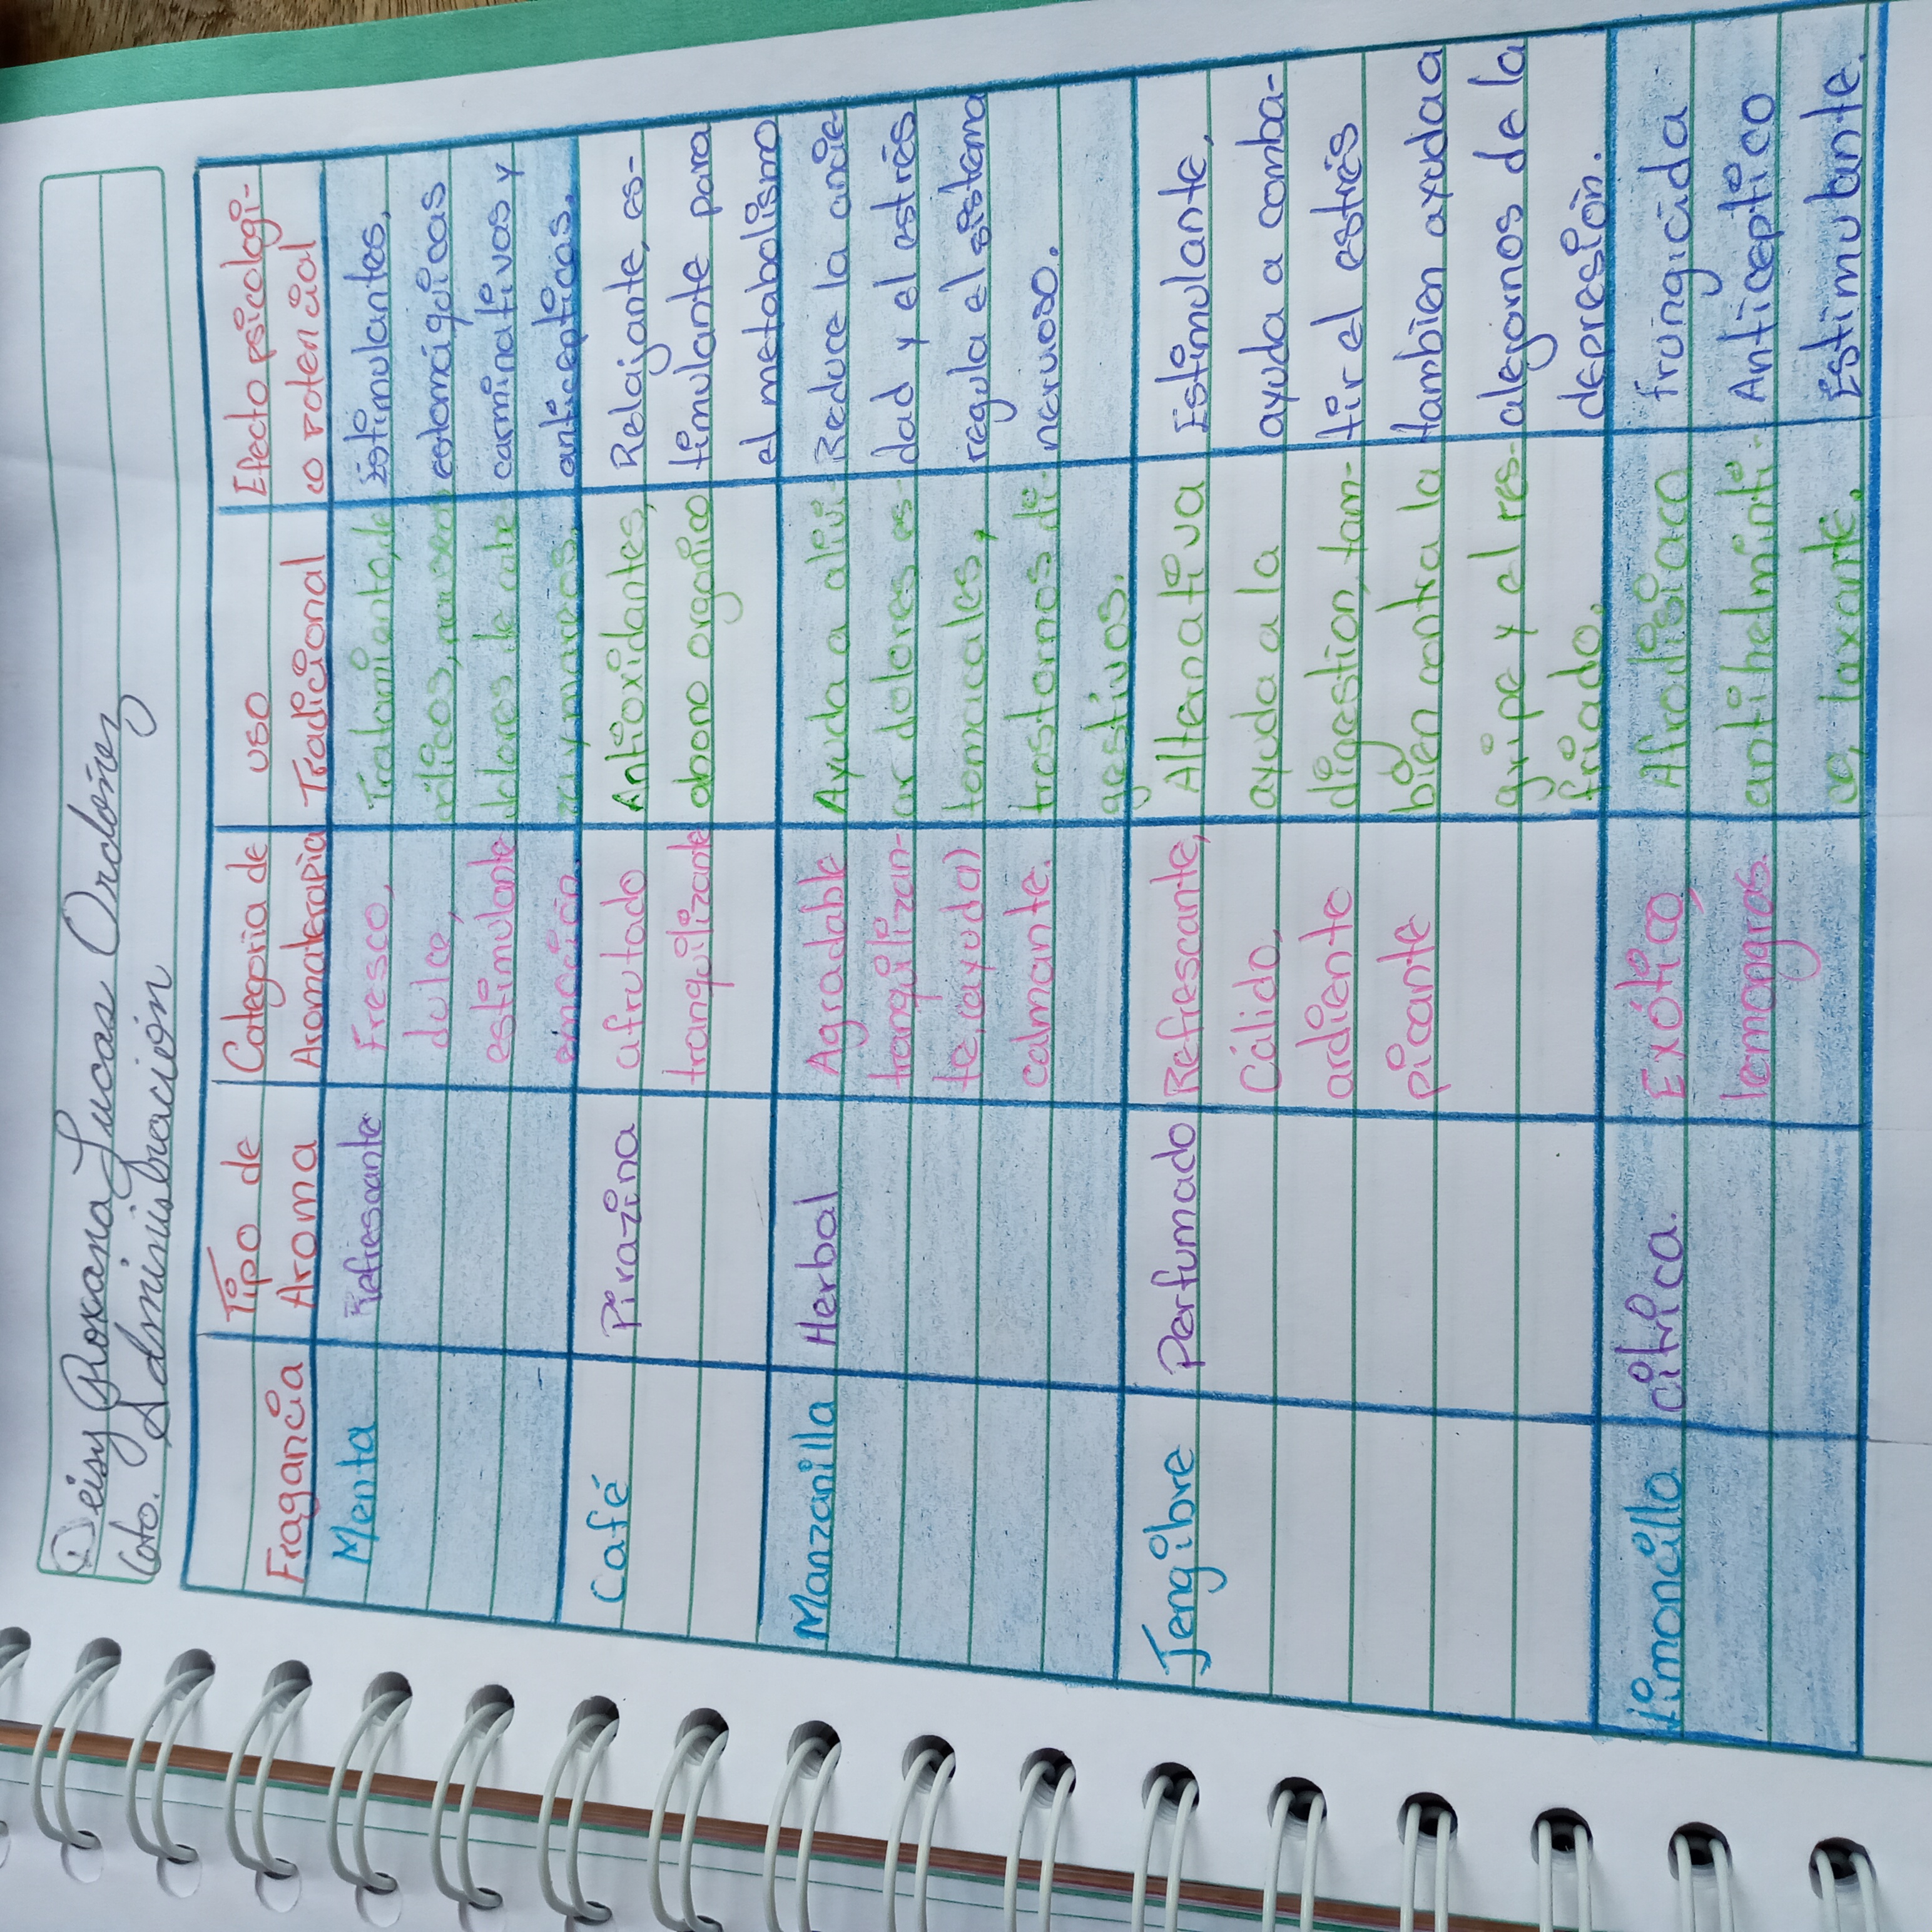 Deisy Roxana Lucas Ordoñez
4to. Administración
Fragancia
Tipo de
Aroma
Categoria de
Aromaterapia
uso
Tradicional
Efecto psicologi-
co potencial
Menta
Refrescante
Fresco,
dulce,
estimulante
emoción.
Tratamiento, de
cólicos, nauseas
dolores de cabe
za y mareos.
Estimulantes,
estomáquicas
carminativos y
anticepticas.
Café
Pirazina
afrutado
tranquilizante
Antioxidantes,
abono organico
Relajante, es-
timulante para
el metabolismo
Manzanilla
Herbal
Agradable
tranquilizan-
te, (ayuda)
calmante.
Ayuda a alivi-
ar dolores es-
tomacales,
trastornos di-
gestivos.
Reduce la ancie
dad y el estrés
regula el sistema
nervioso.
Jengibre
Perfumado
Refrescante,
Cálido,
ardiente
picante
Alternativa
ayuda a la
digestion, tam-
bién contra la
gripe y el res-
friado.
Estimulante,
ayuda a comba-
tir el estrés
tambien ayuda a
alegarnos de la
depresión.
Limoncillo
cítrica.
Exótico,
lemongros.
Afrodisiaco
antihelminti-
co, laxante.
frungicida
Anticeptico
Estimulante.